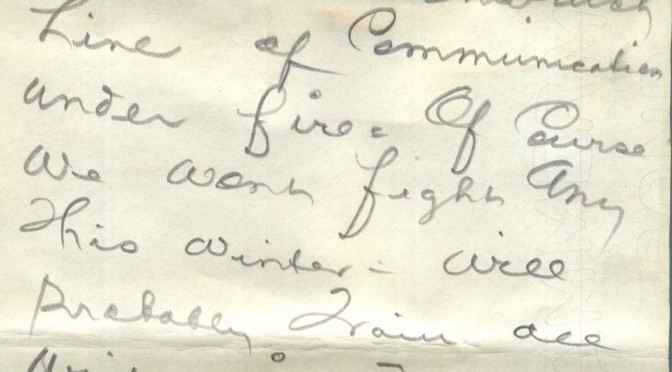 Line of Communication
under fire. Of Course
We wont fight Any
This winter - will
Probably Train all